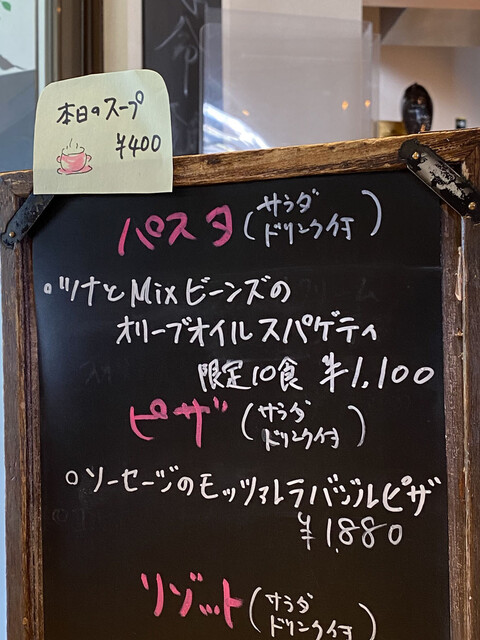 本日のスープ
¥400
パスタ(サラダ
ドリンク付)
○ツナとMixビーンズの
オリーブオイルスパゲティ
限定10食 ¥1,100
ピザ(サラダ
ドリンク付)
○ソーセージのモッツァレラバジルピザ
¥1,880
リゾット(サラダ
ドリンク付)